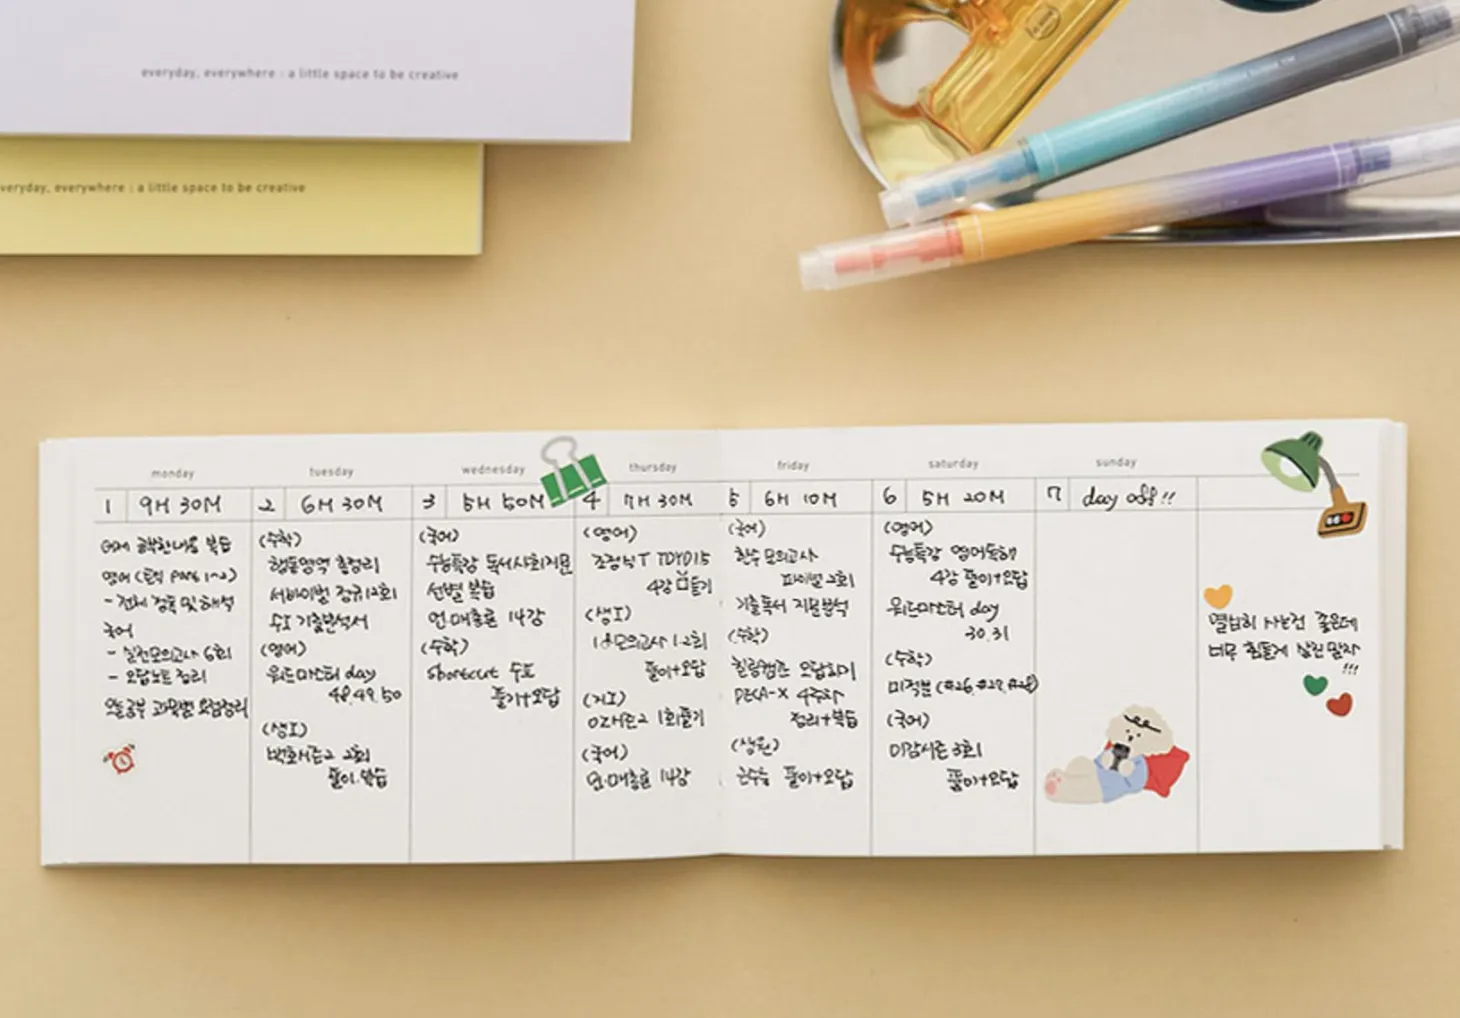 everyday, everywhere : a little space to be creative
everyday, everywhere : a little space to be creative
monday
1 9H 30M
어제 공부한 내용 복습
영어 (토익 Part 1~2)
- 전체 정독 및 해석
국어
- 실전모의고사 6회
- 오답노트 정리
오늘 공부 과목별 요점정리
tuesday
2 6H 30M
(수학)
행동영역 총정리
서바이벌 정규 12회
수II 기출분석서
(영어)
워드마스터 day
48.49.50
(생I)
백호시즌2 2회
풀이.복습
wednesday
3 5H 50M
(국어)
수능특강 독서 사회지문
선별 복습
언.매총론 14강
(수학)
shortcut 수II
풀기+오답
thursday
4 7H 30M
(영어)
조정식T
4강 듣기
(생I)
모의고사 1.2회
풀이+오답
OZ시즌2 1회풀기
(국어)
언.매총론 14강
friday
5 6H 10M
(국어)
한수 모의고사
파이널 2회
기출독서 지문분석
(수학)
킬링캠프 오답하기
DECA-X 4주차
정리+복습
풀이+오답
saturday
6 5H 20M
(영어)
수능특강 영어독해
4강 풀이+오답
워드마스터 day
30.31
(수학)
미적분 (#26.#27.#28)
(국어)
이감시즌 3회
풀이+오답
sunday
7 day off!!
열심히 사는건 좋은데
너무 힘들게 살진 말자
!!!